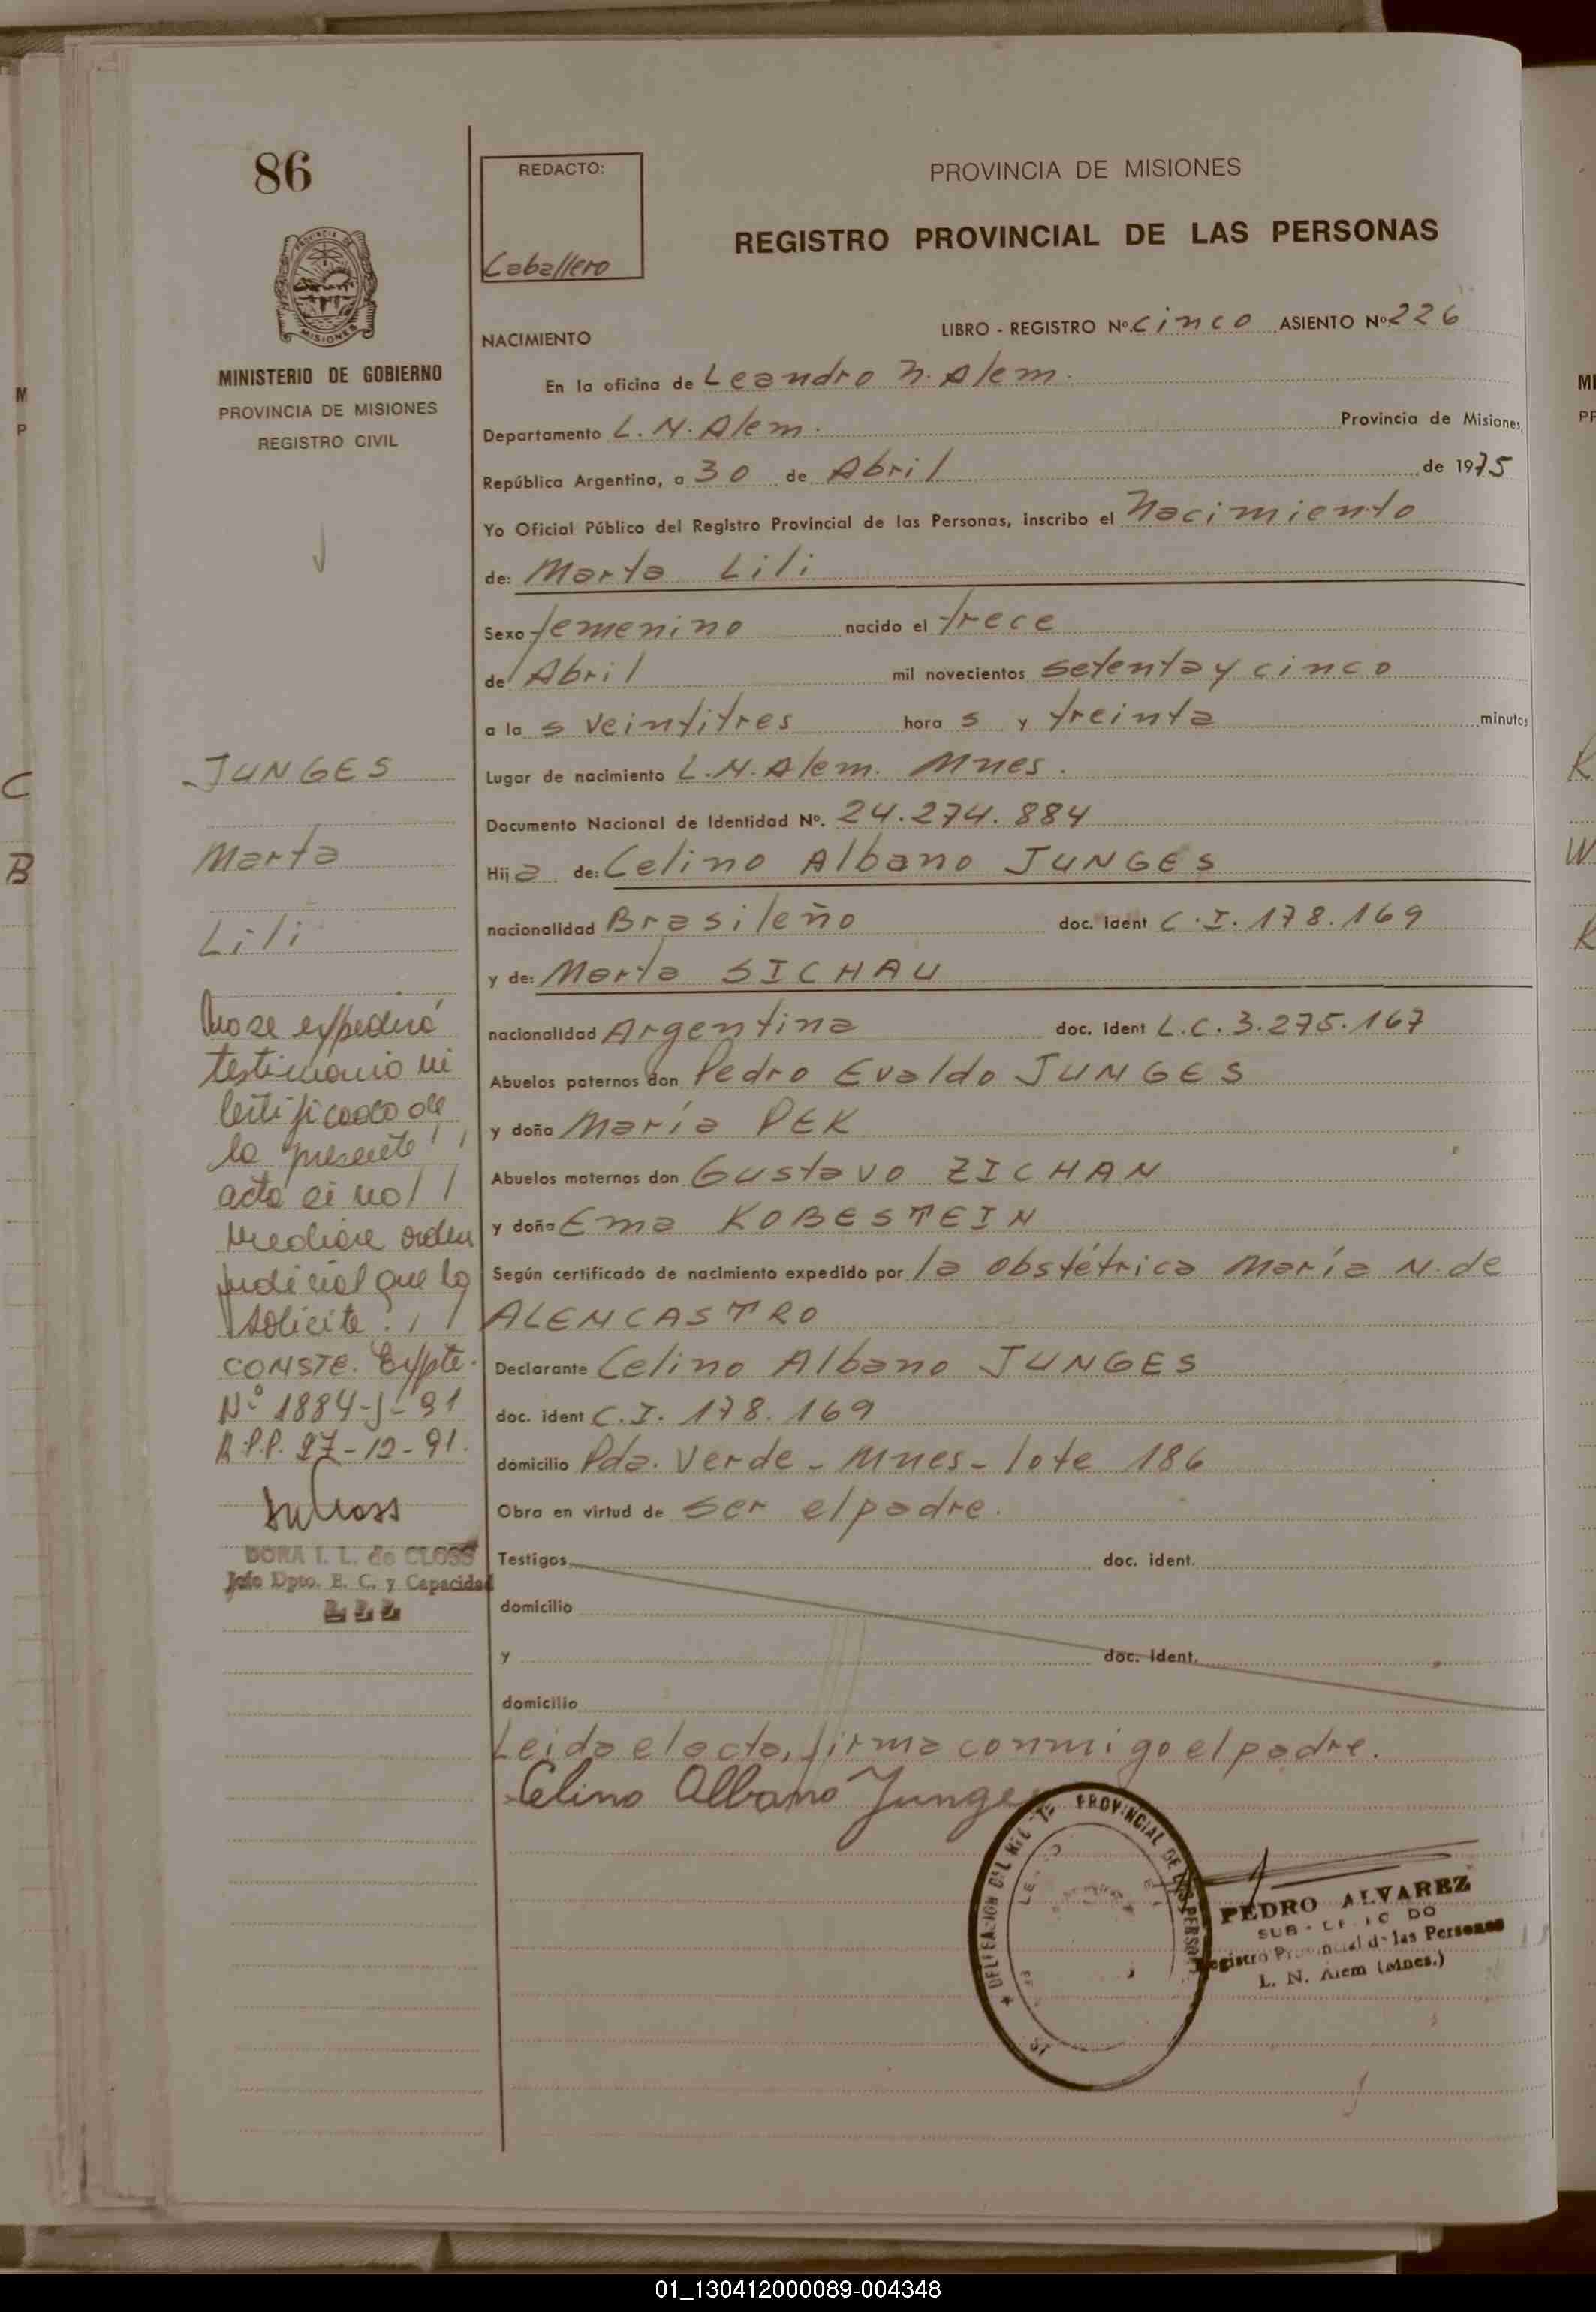 86
PROVINCIA DE
MISIONES
MINISTERIO DE GOBIERNO
PROVINCIA DE MISIONES
REGISTRO CIVIL
REDACTO:
Caballero
PROVINCIA DE MISIONES
REGISTRO PROVINCIAL DE LAS PERSONAS
NACIMIENTO
LIBRO - REGISTRO Nº cinco ASIENTO Nº 226
En la oficina de Leandro N. Alem.
Departamento L. N. Alem. Provincia de Misiones,
República Argentina, a 30 de Abril de 1975
Yo Oficial Público del Registro Provincial de las Personas, inscribo el Nacimiento
de: Marta Lili
Sexo femenino nacido el trece
de Abril mil novecientos setenta y cinco
a la s veintitres hora s y treinta minutos
Lugar de nacimiento L. N. Alem. Mnes.
Documento Nacional de Identidad Nº. 24.274.884
Hij a de: Celino Albano JUNGES
nacionalidad Brasileño doc. ident C.I. 178.169
y de: Marta SICHAU
nacionalidad Argentina doc. ident L.C. 3.275.167
Abuelos paternos don Pedro Evaldo JUNGES
y doña María PEK
Abuelos maternos don Gustavo ZICHAN
y doña Ema KOBESTEIN
Según certificado de nacimiento expedido por la obstétrica María N. de
ALENCASTRO
Declarante Celino Albano JUNGES
doc. ident C.I. 178.169
domicilio Pda. Verde - Mnes - lote 186
Obra en virtud de ser el padre.
Testigos doc. ident.
domicilio
y doc. ident.
domicilio
Leida el acta, firma conmigo el padre.
Celino Albano Junges
JUNGES
Marta
Lili
No se expedirá
testimonio ni
certificado de
la presente
acta si no
mediare orden
judicial que lo
solicite.
CONSTE. Expte.
Nº 1884-J-91
R.P.P. 27-12-91.
DORA I. L. de CLOSS
Jefe Dpto. E. C. y Capacidad
PROVINCIAL DE LAS
PEDRO ALVAREZ
SUB -
Registro Provincial de las Personas
L. N. Alem (Mnes.)
M
P
C
B
MI
PR
K
W
K
01_130412000089-004348